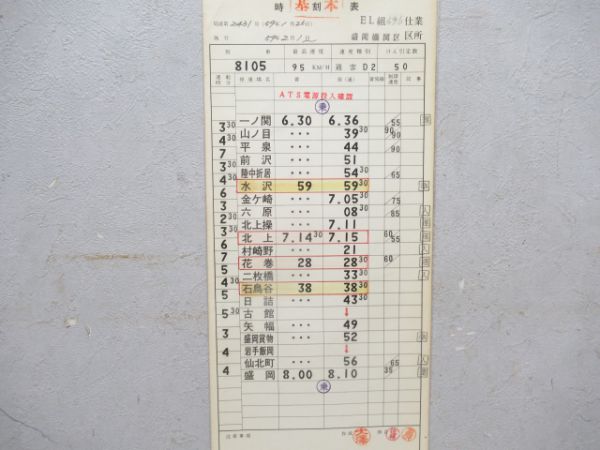 時 基 刻 本 表
EL組 696 仕業
盛岡機関区 区所
列車 最高速度 速度種別 けん引定数
8105 95 KM/H 通貨 D2 50
停車場名 着 発(通) 制限速度 記事
ATS電源投入確認
乗
一ノ関 6.30 6.36 55
3 30 山ノ目 ・・・ 39 30 90 90
4 平泉 ・・・ 44 90
7 前沢 ・・・ 51
3 30 陸中折居 ・・・ 54 30 65
4 30 水沢 59 59 30
6 金ケ崎 ・・・ 7.05 30 75
3 六原 ・・・ 08 30 85
2 30 北上操 ・・・ 7.11
3 30 北上 7.14 30 7.15 60 55
6 村崎野 ・・・ 21
7 花巻 28 28 30 60
5 二枚橋 ・・・ 33 30
5 石鳥谷 38 38 30
5 日詰 ・・・ 43 30
古館 ↓
5 30 矢幅 ・・・ 49
3 盛岡貨物 ・・・ 52
岩手飯岡 ↓
4 仙北町 ・・・ 56 65
4 盛岡 8.00 8.10 35
乗
注意事項